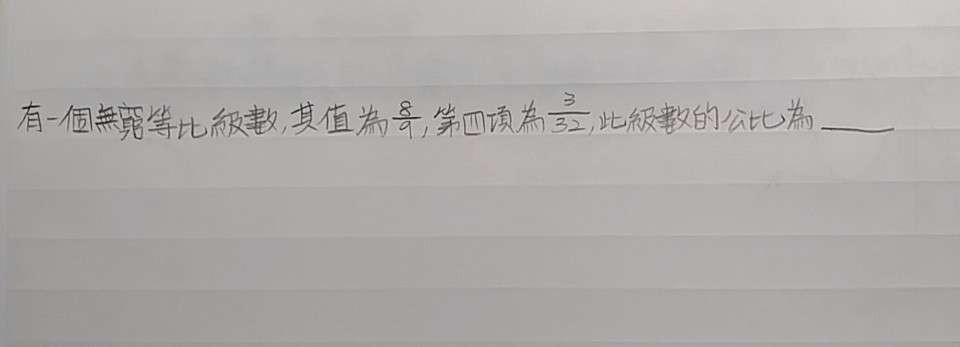 有一個無窮等比級數,其值為8/9,第四項為3/32,此級數的公比為____